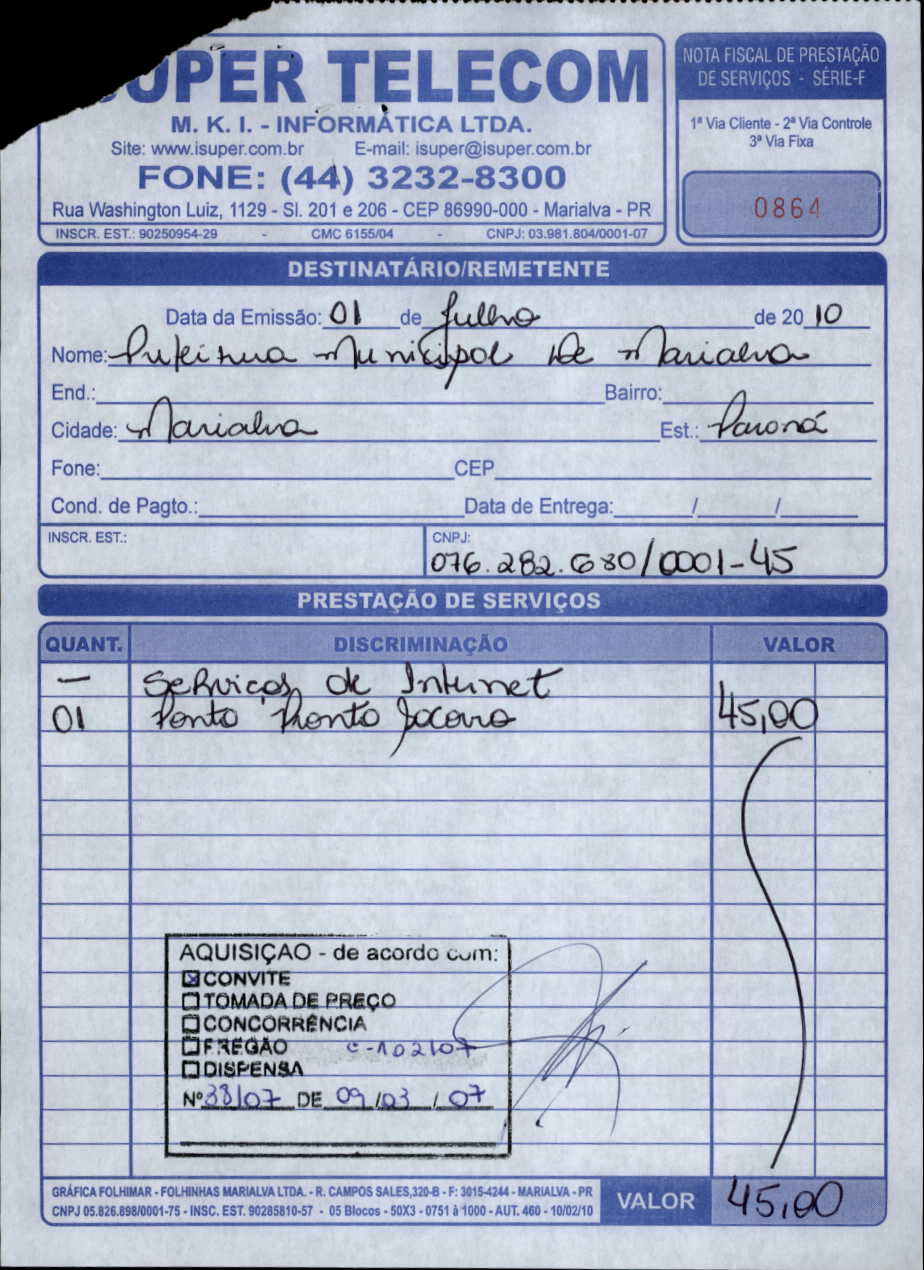 SUPER TELECOM
M. K. I. - INFORMÁTICA LTDA.
Site: www.isuper.com.br E-mail: isuper@isuper.com.br
FONE: (44) 3232-8300
Rua Washington Luiz, 1129 - Sl. 201 e 206 - CEP 86990-000 - Marialva - PR
INSCR. EST.: 90250954-29 - CMC 6155/04 - CNPJ: 03.981.804/0001-07
NOTA FISCAL DE PRESTAÇÃO
DE SERVIÇOS - SÉRIE-F
1ª Via Cliente - 2ª Via Controle
3ª Via Fixa
0864
DESTINATÁRIO/REMETENTE
Data da Emissão: 01 de Julho de 20 10
Nome: Prefeitura Municipal De Marialva
End.: Bairro:
Cidade: Marialva Est.: Paraná
Fone: CEP
Cond. de Pagto.: Data de Entrega: / /
INSCR. EST.: CNPJ:
076.282.680/0001-45
PRESTAÇÃO DE SERVIÇOS
QUANT. DISCRIMINAÇÃO VALOR
— Serviços de Internet
01 Ponto Pronto Socorro 45,00
AQUISIÇAO - de acordo com:
CONVITE
TOMADA DE PREÇO
CONCORRÊNCIA
PREGÃO C-102/07
DISPENSA
Nº 38/07 DE 09 /03 / 07
GRÁFICA FOLHIMAR - FOLHINHAS MARIALVA LTDA. - R. CAMPOS SALES,320-B - F: 3015-4244 - MARIALVA - PR
CNPJ 05.826.898/0001-75 - INSC. EST. 90285810-57 - 05 Blocos - 50X3 - 0751 à 1000 - AUT. 460 - 10/02/10
VALOR 45,00